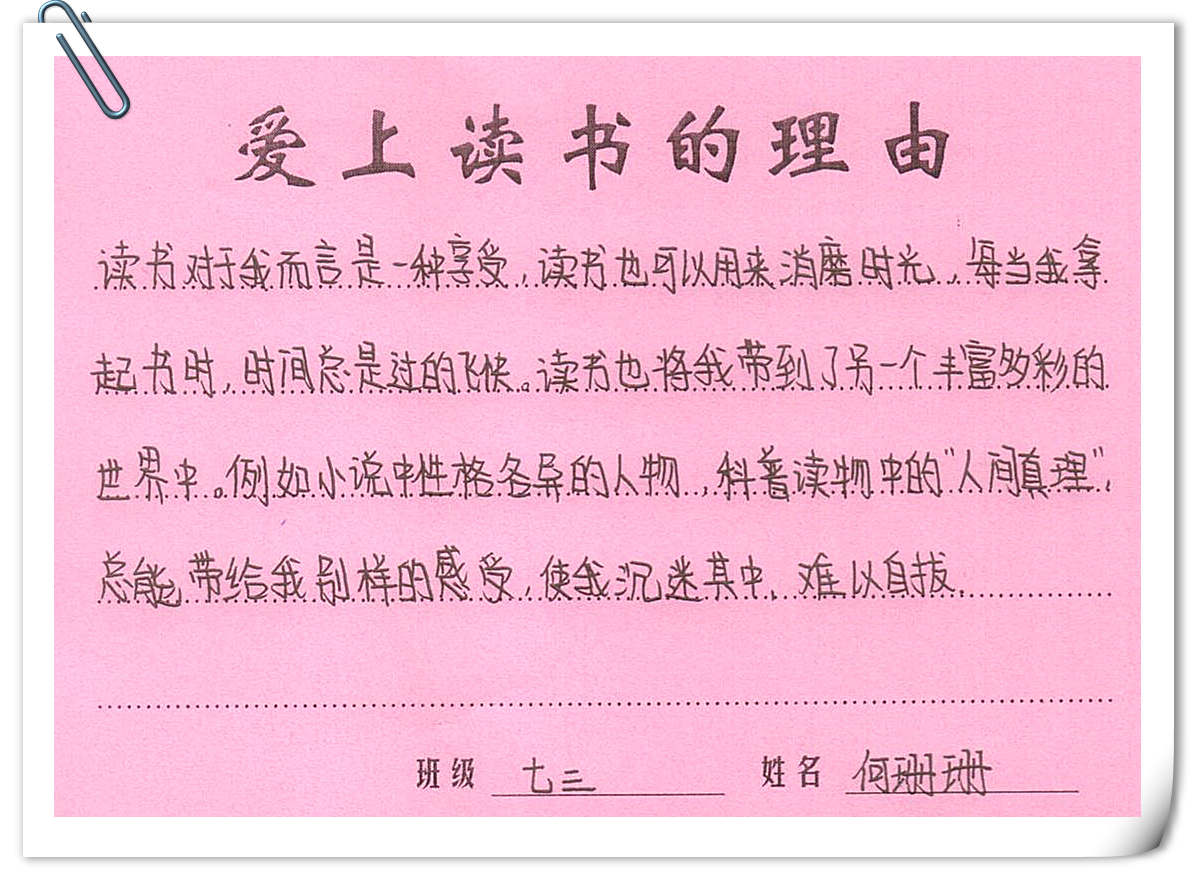 爱上读书的理由
读书对于我而言是一种享受,读书也可以用来消磨时光,每当我拿
起书时,时间总是过的飞快。读书也将我带到了另一个丰富多彩的
世界中。例如小说中性格各异的人物,科普读物中的"人间真理",
总能带给我别样的感受,使我沉迷其中,难以自拔.
班级 七三 姓名 何珊珊